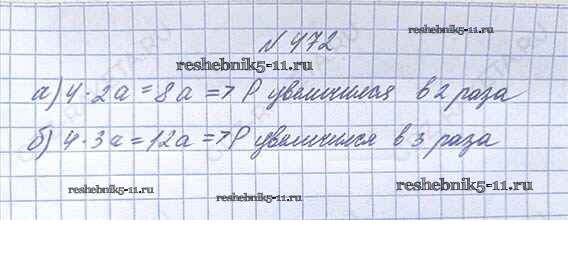 N 472
reshebnik5-11.ru
а) 4 · 2a = 8a => P увеличился в 2 раза
б) 4 · 3a = 12a => P увеличился в 3 раза
reshebnik5-11.ru
reshebnik5-11.ru
reshebnik5-11.ru
reshebnik5-11.ru